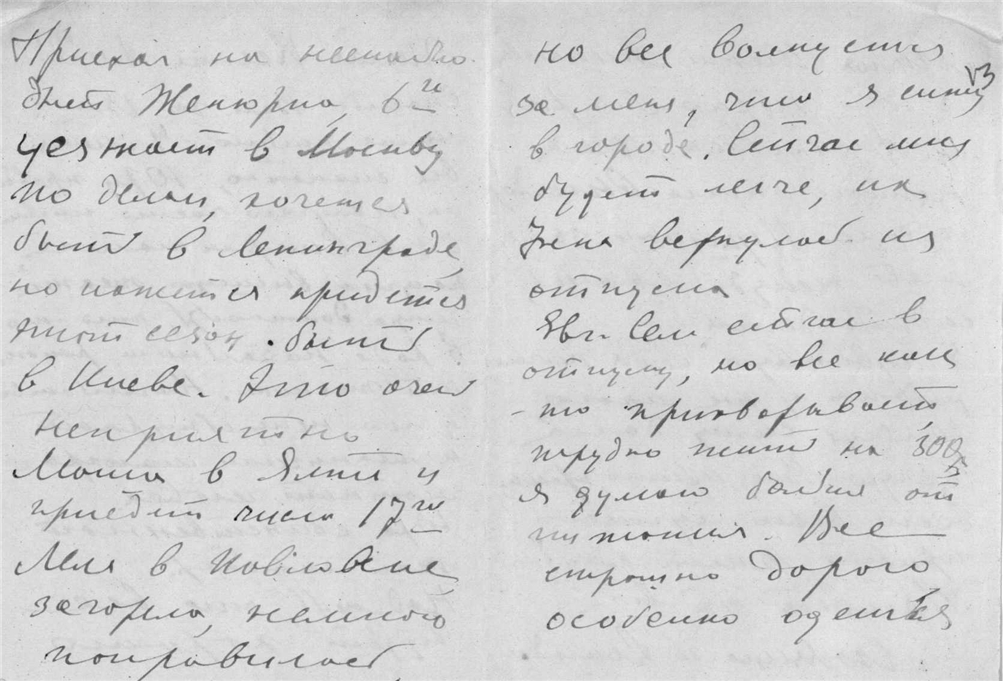 Приехал на несколько
дней Женюрка, 6го
уезжает в Москву
по делам, хочется
быть в Ленинграде,
но кажется придется
этот сезон быть
в Киеве. Это очень
неприятно
Маша в Ялте и
приедет числа 17го
Леля в Павловске,
загорела, немного
поправилась
но все волнуется
за меня, что я сижу
в городе. Сейчас мне
будет легче, ик
вернулась из
отпуска
Евг. Сем сейчас в
отпуску, но все как
-то прихварывает,
трудно жить на 300р
я думаю болен от
питания. Все
страшно дорого
особенно одежда